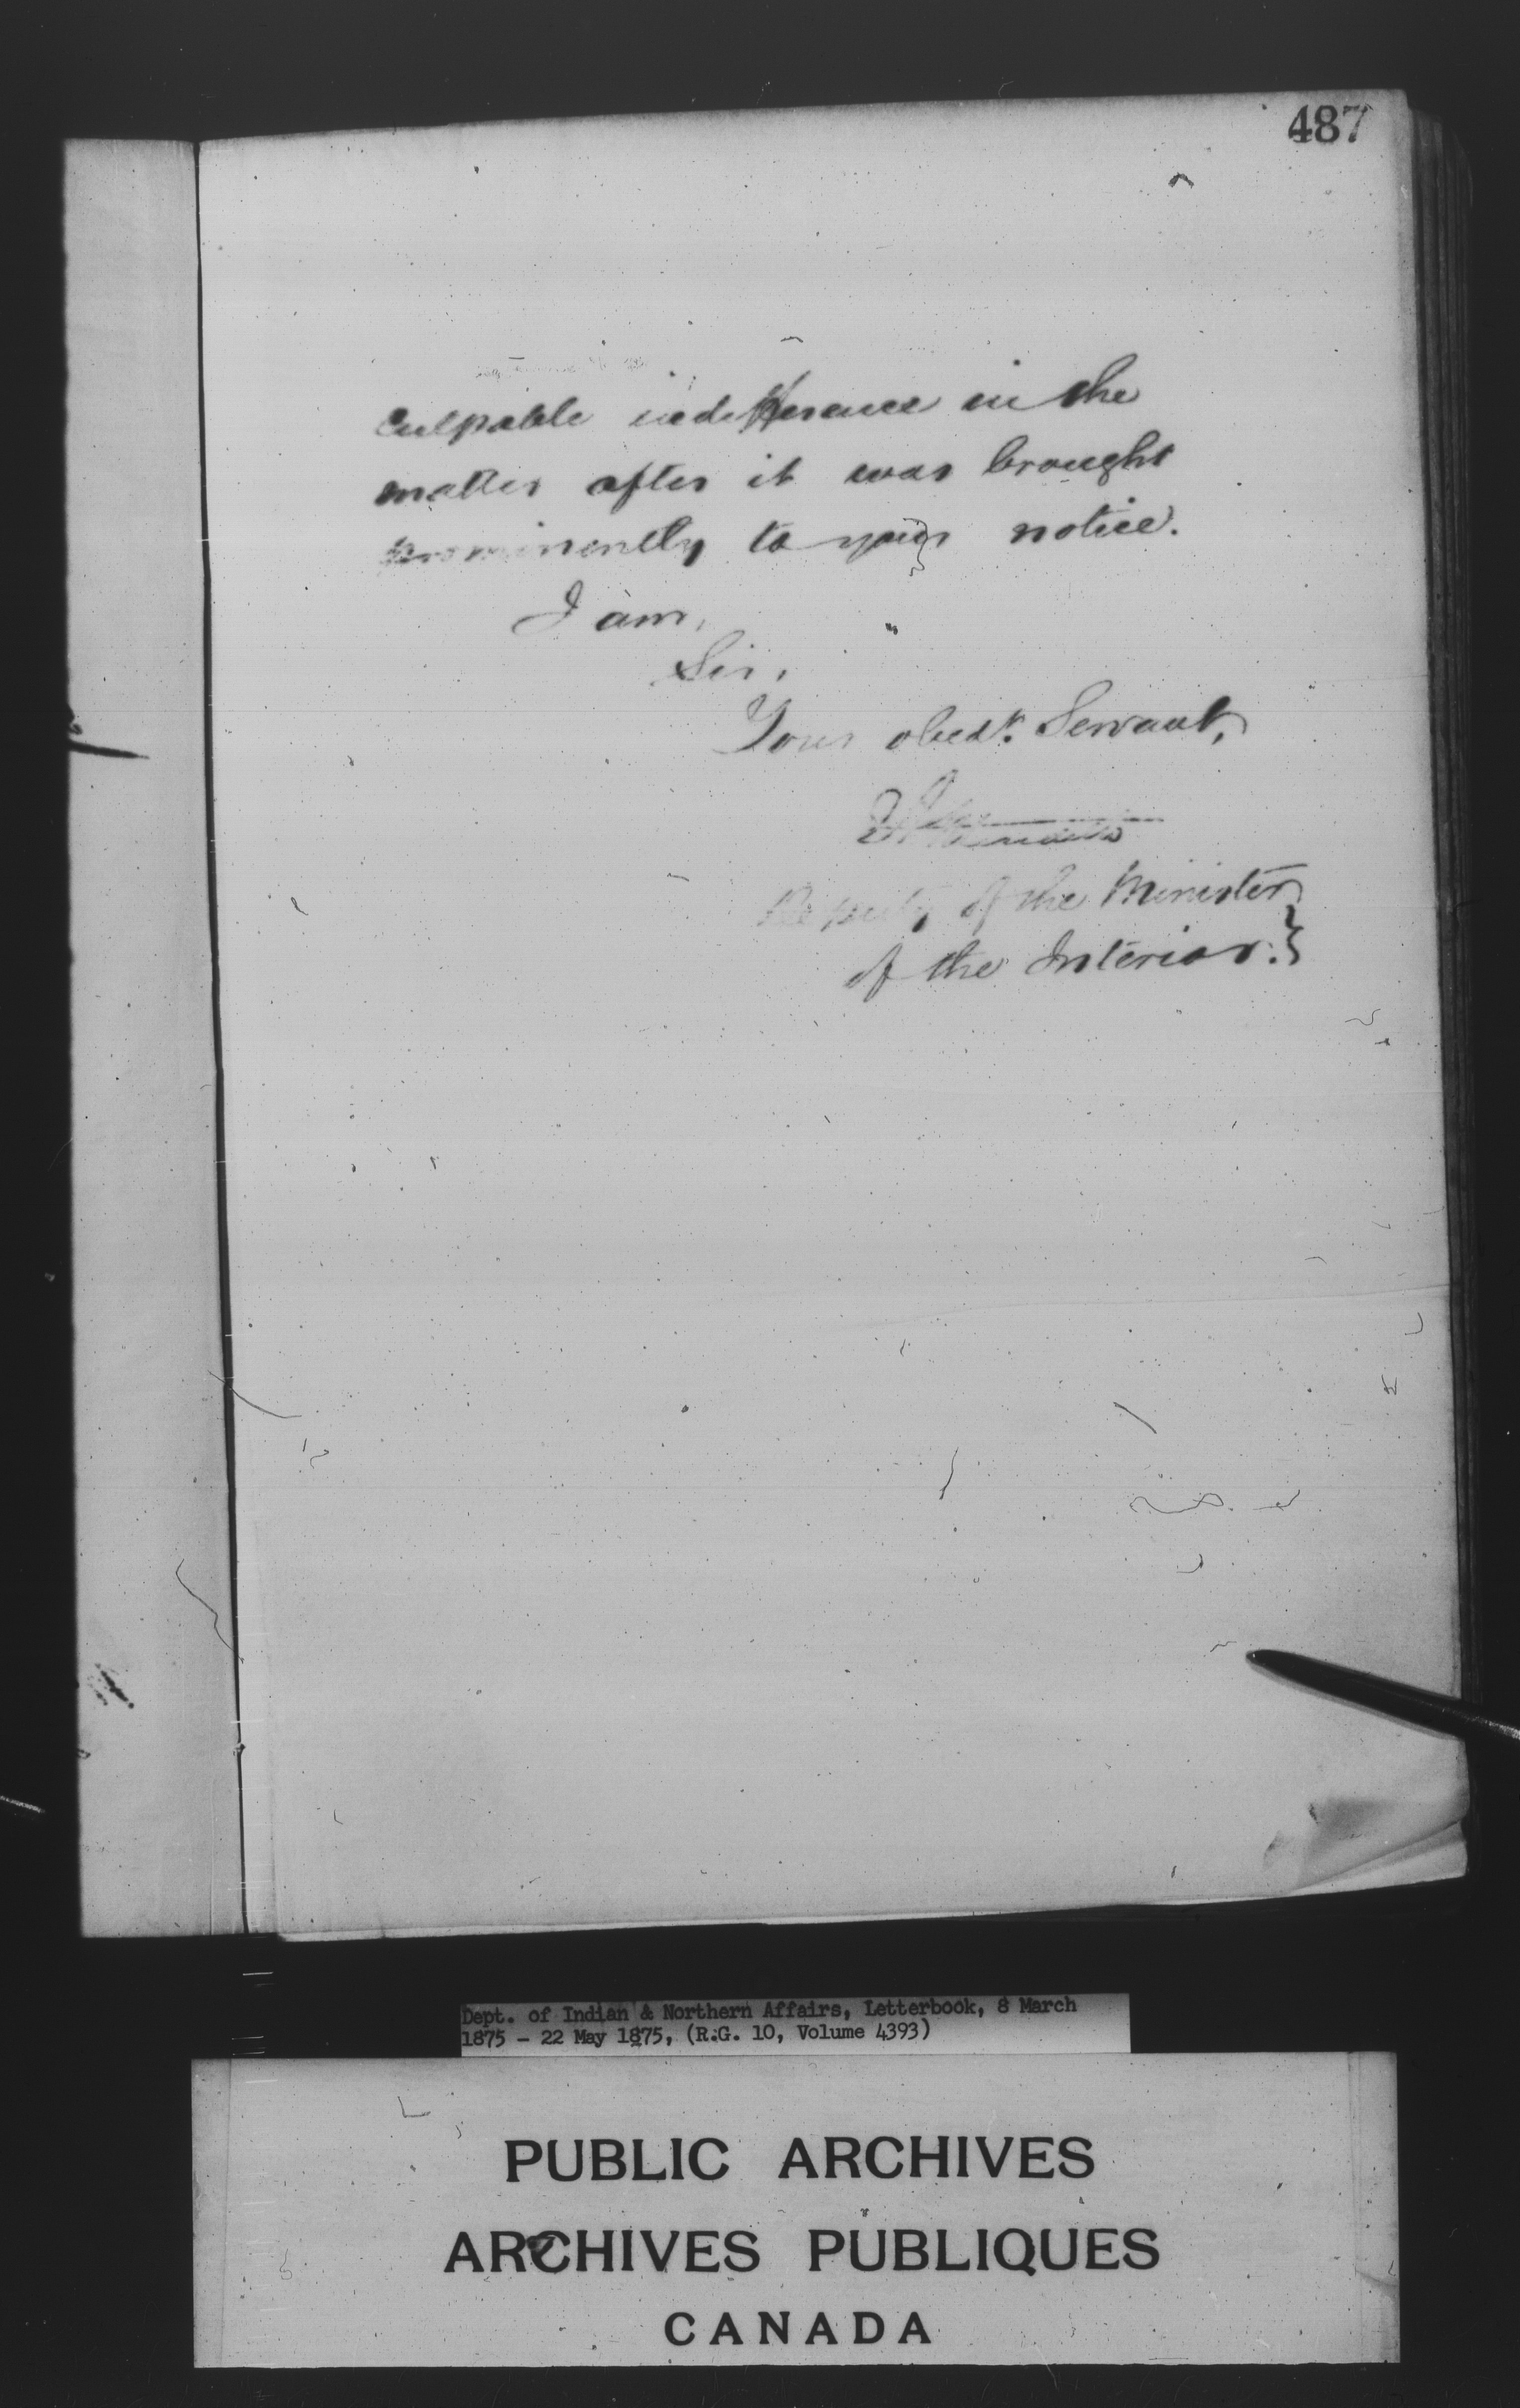 487
culpable indifference in the
matter after it was brought
prominently to your notice.
I am,
Sir,
Your obedt. Servant,
Deputy of the Minister
of the Interior.
Dept. of Indian & Northern Affairs, Letterbook, 8 March
1875 - 22 May 1875, (R.G. 10, Volume 4393)
PUBLIC ARCHIVES
ARCHIVES PUBLIQUES
CANADA